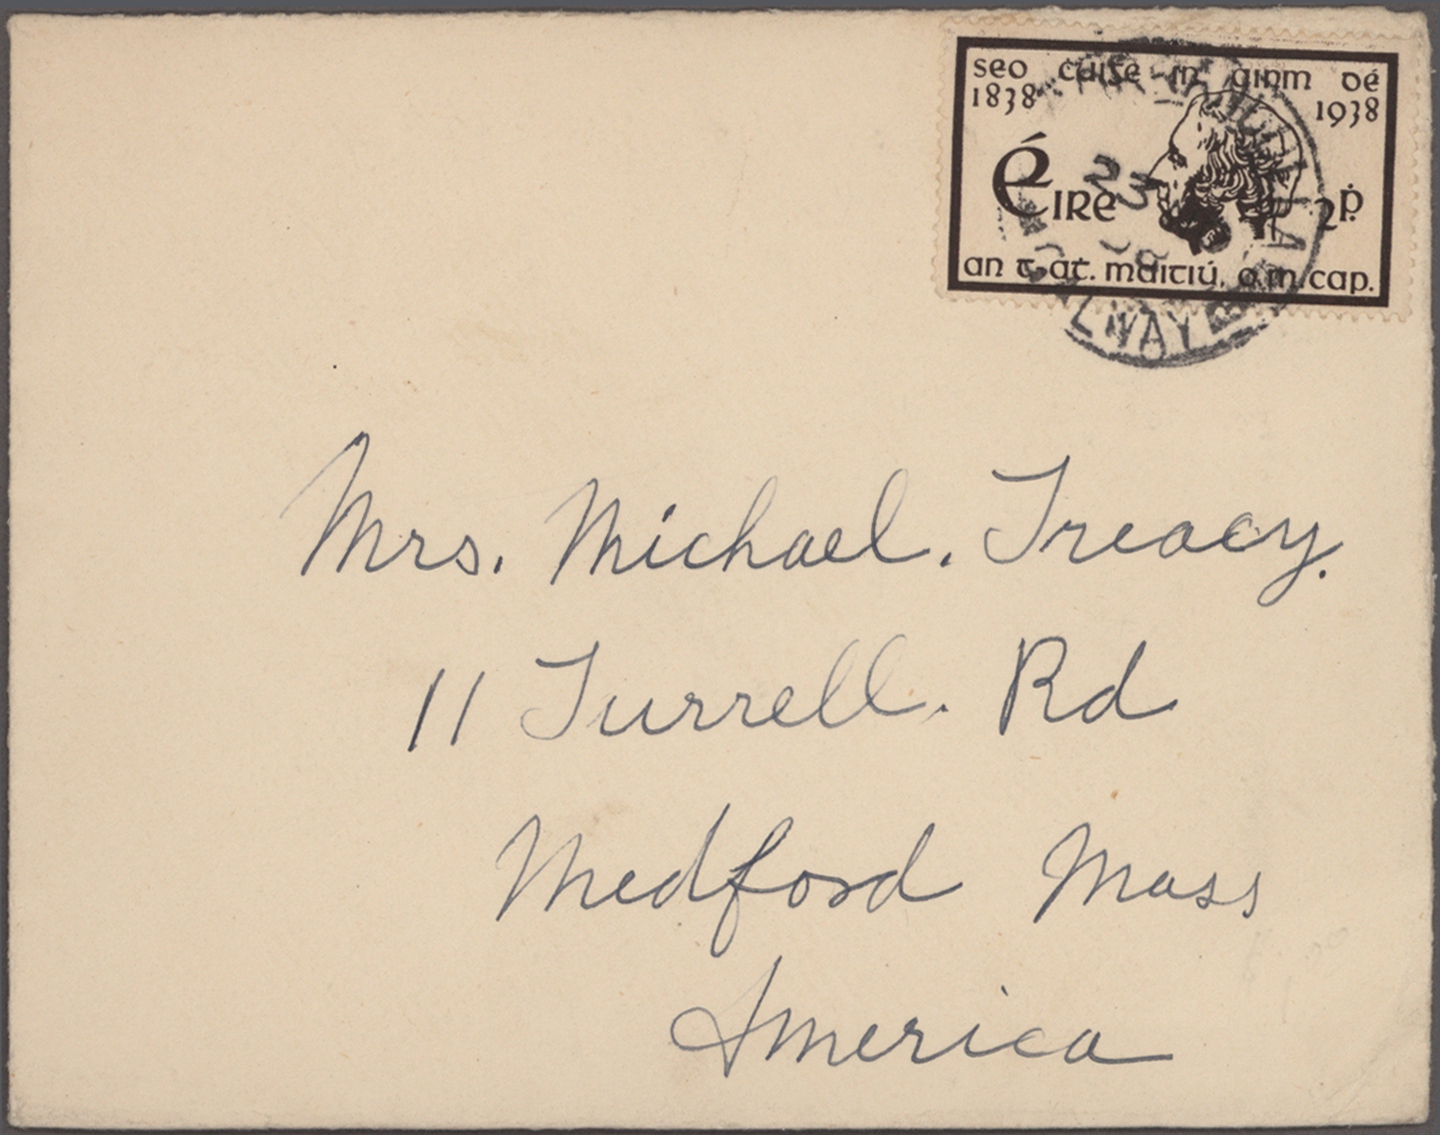 seo cúise in ainm dé
1838 1938
Éire 2ṗ.
an t-at. maitiú, o.m.cap.
23
GALWAY
Mrs. Michael. Treacy.
11 Turrell. Rd
Medford Mass
America